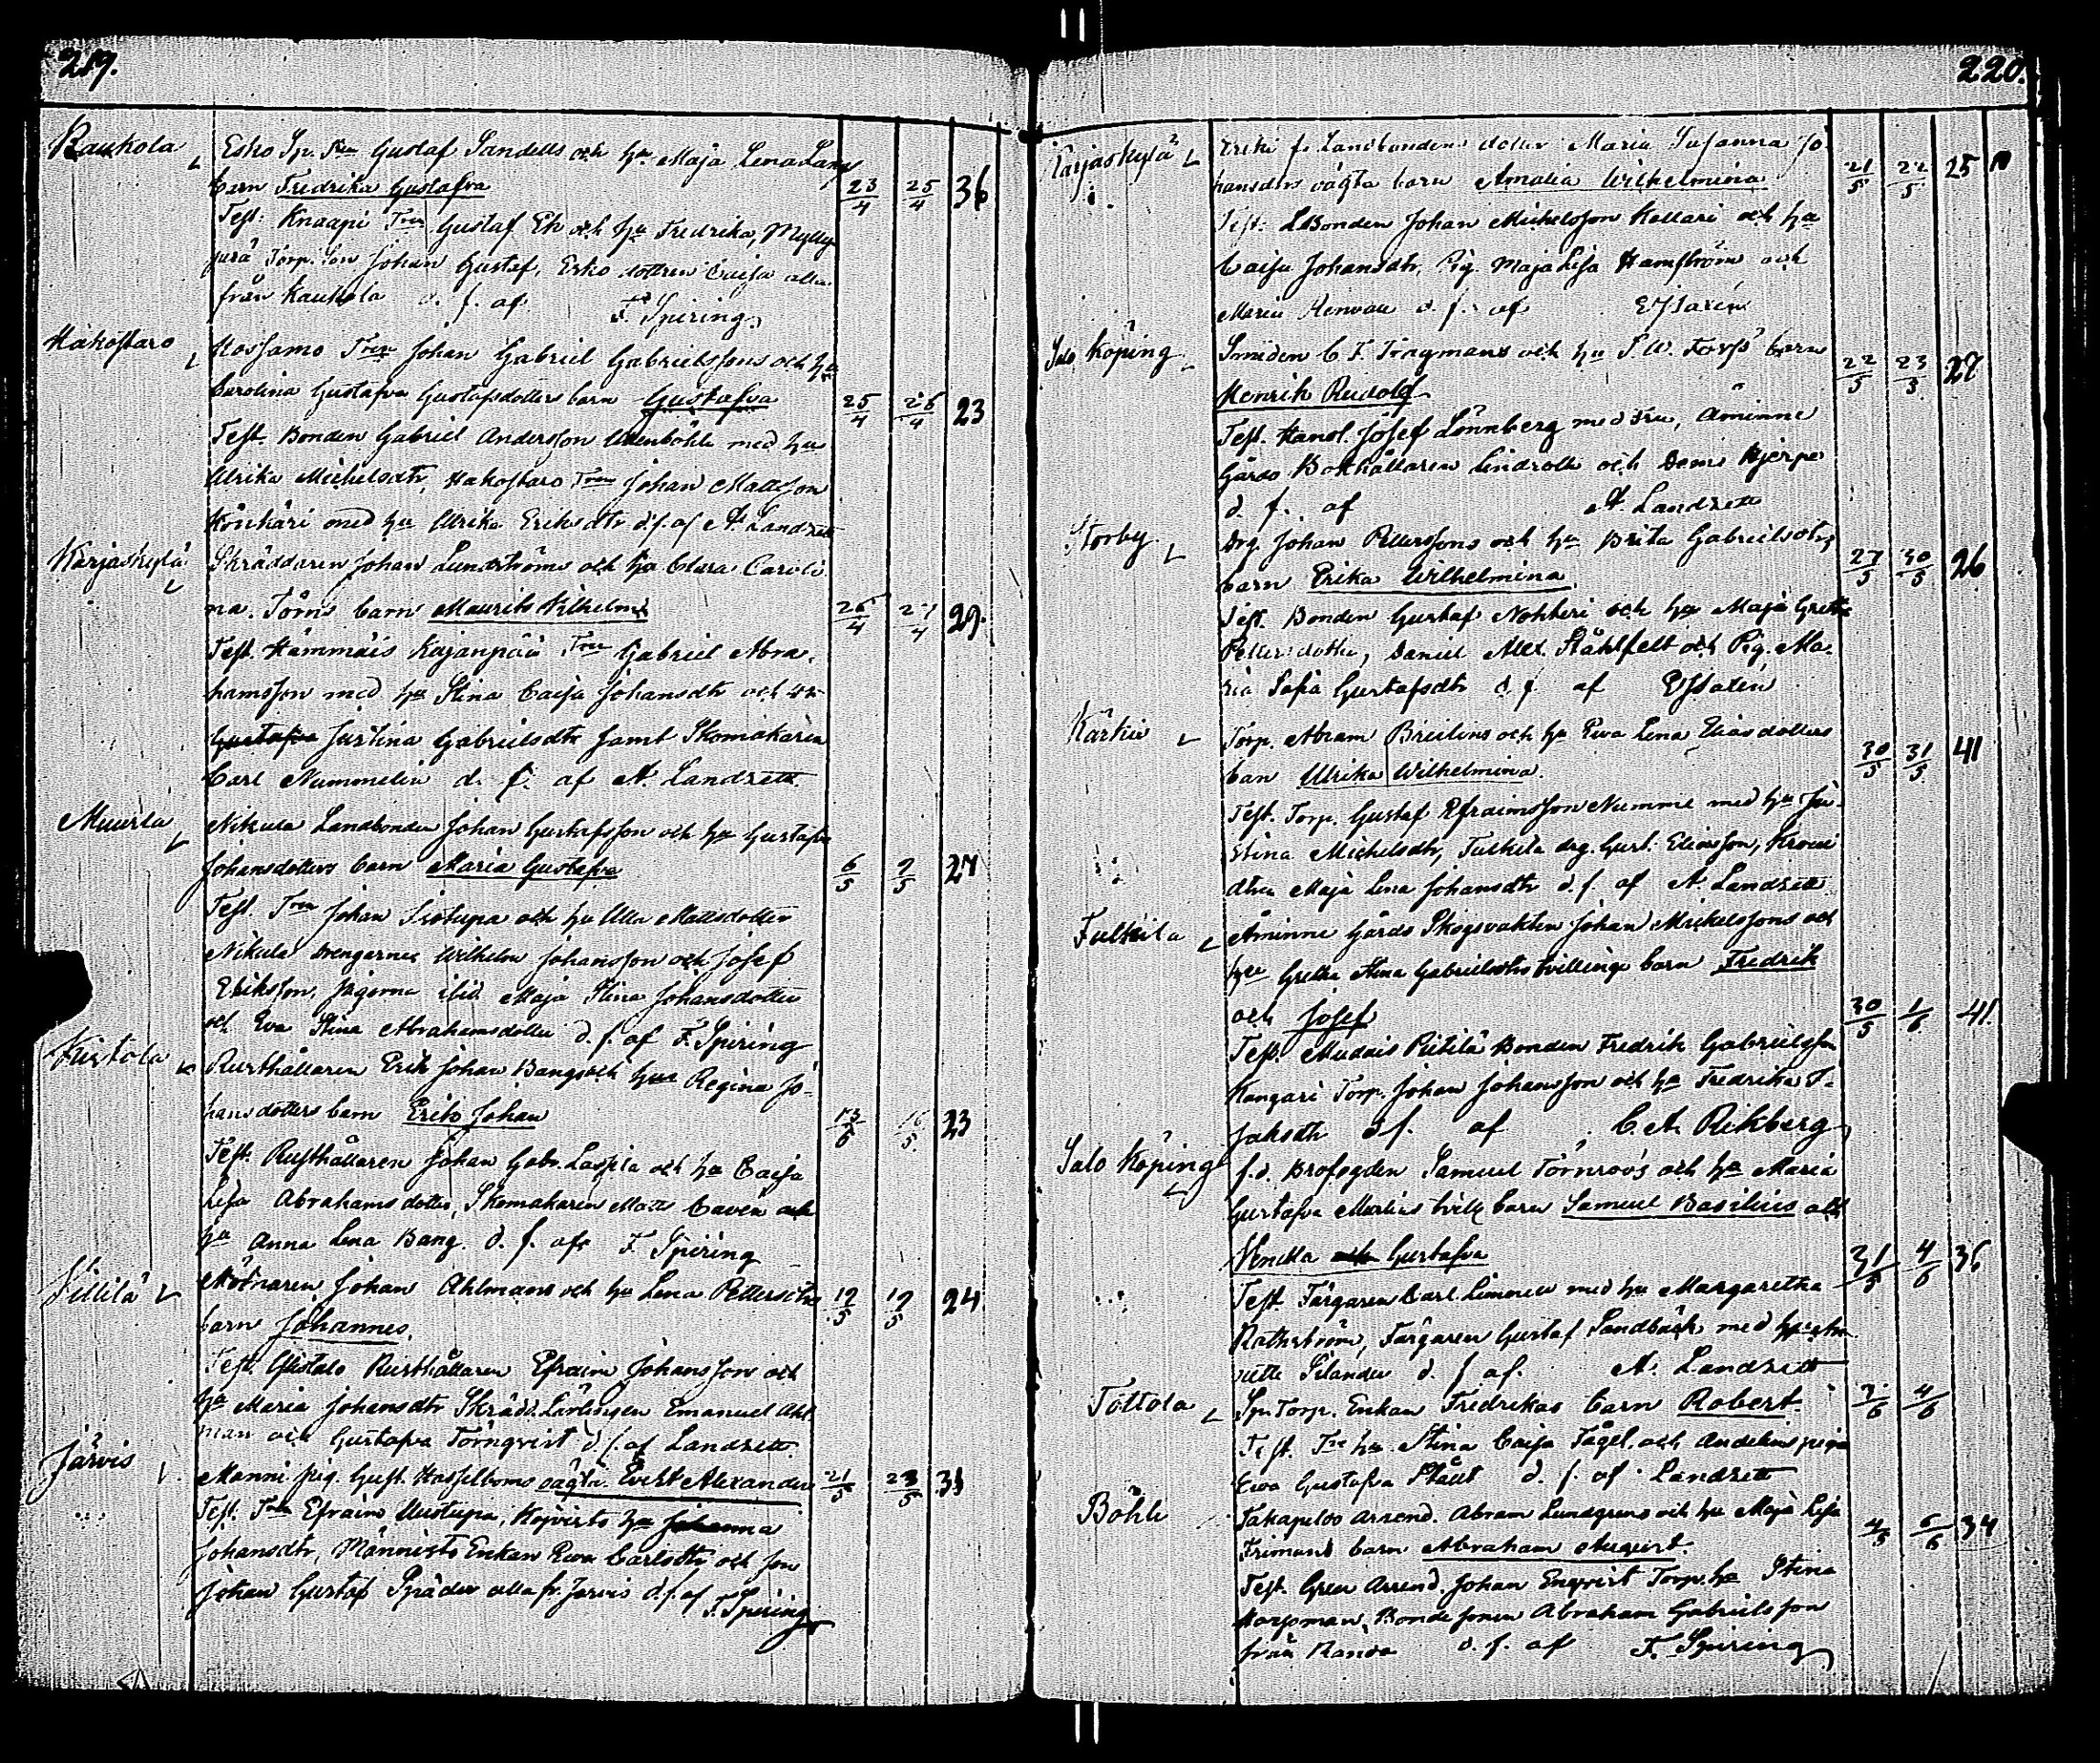 219.
Kaukola Esko Sp. Tren Gustaf Sandells och hu Maja Lena Lang
barn Fredrika Gustafva 23/4 25/4 36
Test. Knaapi Tren Gustaf Ek och hu Fredrika, Mylly
perä Torp. son Johan Gustaf, Esko dottren Caisa alla
från Kaukola d. f. af F. Spiring
Hakostaro Kossamo Tren Johan Gabriel Gabrielssons och hu
Carolina Gustafva Gustafsdotters barn Gustafva 25/4 26/4 23
Test. Bonden Gabriel Andersson Ullenböhle med hu
Ulrika Michelsdtr, Hakostaro Tren Johan Mattsson
med hu Ulrika Eriksdtr d. f. af A. Landzett
Kärjaskylä Skräddaren Johan Lundströms och hu Clara Caroli
na Törns barn Maurits Wilhelm 26/4 27/4 29.
Test. Hämmäis Kajanpää Tren Gabriel Abra
hamsson med hu Stina Caisa Johansdtr och
Gustafva Justina Gabrielsdtr samt Skomakaren
Carl Nummelin d. f. af A. Landzett
Muurla Nikula Landbonden Johan Gustafsson och hu Gustafva
Johansdotters barn Maria Gustafva 6/5 7/5 27
Test. Tren Johan Isotupa och hu Ulla Mattsdotter
Nikula drengarne Wilhelm Johansson och Josef
Eriksson, pigorna ibid Maja Stina Johansdotter
och Eva Stina Abrahamsdotter d. f. af F. Spiring
Kistola Rusthållaren Erik Johan Bangs och hu Regina Jo
hansdotters barn Erik Johan 13/5 16/5 23
Test. Rusthållaren Johan Gabr. Laspila och hu Caisa
Lisa Abrahamsdotter, Skomakaren Matts Caven och
hu Anna Lena Bang. d. f. af F. Spiring
Pittilä Mölnaren Johan Ahlmans och hu Lena Pettersdtrs 17/5 19/5 24
barn Johannes.
Test. Rusthållaren Efraim Johansson och
hu Maria Johansdtr Skrädd. Lärlingen Emanuel Ahl
man och Gustafva Törnqvist d. f. af Landzett
Järvis Manni pig. Gust. Hasselboms oägta Evert Alexander 21/5 23/5 31
Test. Tren Efraim Uustupa, Koivisto hu Johanna
Johansdtr, Männistö Enkan Eva Carlsdtr och son
Johan Gustaf alla fr. Jarvis d. f. af F. Spiring
220.
Kärjaskylä Landbondens dotter Maria Susanna Jo
hansdtrs oägta barn Amalia Wilhelmina 21/5 22/5 25
Test. LBonden Johan Michelsson Kellari och hu
Caisa Johansdtr, Pig. Maja Lisa Hamström och
Maria Renvall d. f. af
Salo Köping Smeden C. F. Tragmans och hu S. W. Forss barn 22/5 23/5 27
Henrik Rudolf
Test. Handl. Josef Lönnberg med Fru, Åminne
Gårds Bokhållaren Lindroth och Dem. Hjerpe
d. f. af A. Landzett
Storby Drg. Johan Petterssons och hu Brita Gabrielsdtrs
barn Erika Wilhelmina 27/5 30/5 26
Test. Bonden Gustaf Nokkeri och hu Maja Greta
Pettersdotter, Daniel Alex. Ståhlfelt och Pig. Ma
ria Sofia Gustafsdtr d. f. af
Kärkis Torp. Abram Breilins och hu Eva Lena Eliasdotters
barn Ulrika Wilhelmina. 30/5 31/5 41
Test. Torp. Gustaf Efraimsson Numme med hu Ju
stina Michelsdtr, Tulkila drg. Gust. Eliasson,
dtrn Maja Lena Johansdtr d. f. af A. Landzett
Tulkila Åminne Gårds Skogsvakten Johan Mickelssons och
hu Greta Stina Gabrielsdtrs tvillinge barn Fredrik
och Josef 30/5 1/6 41.
Test. Muddais Piitilä Bonden Fredrik Gabrielsson
Kangari Torp. Johan Johansson och hu Fredrika I
saksdtr d. f. af C. A. Rikberg
Salo Köping f. d. Brofogden Samuel Törnroos och hu Maria
Gustafva Merlins tvill. barn Samuel Basilius och
Vendla Gustafva 31/5 4/6 36
Test. Färgaren Carl Limnell med hu Margaretha
Rathström, Färgaren Gustaf Sandbäck med hu
d. f. af. A. Landzett
Tottola Sp. Torp. Enkan Fredrikas barn Robert. 2/6 4/6
Test. Tre hu Stina Caisa Fågel, och Andelins piga
Eva Gustafva Stååt d. f. af Landzett
Böhle Takapeldo Arrend. Abram Lundgrens och hu Maja Lisa 4/5 6/6 34
Frimans barn Abraham August.
Test. Arrend. Johan Enqvist Torp. hu Stina
Bonde sonen Abraham Gabrielsson
från Randa d. f. af F. Spiring